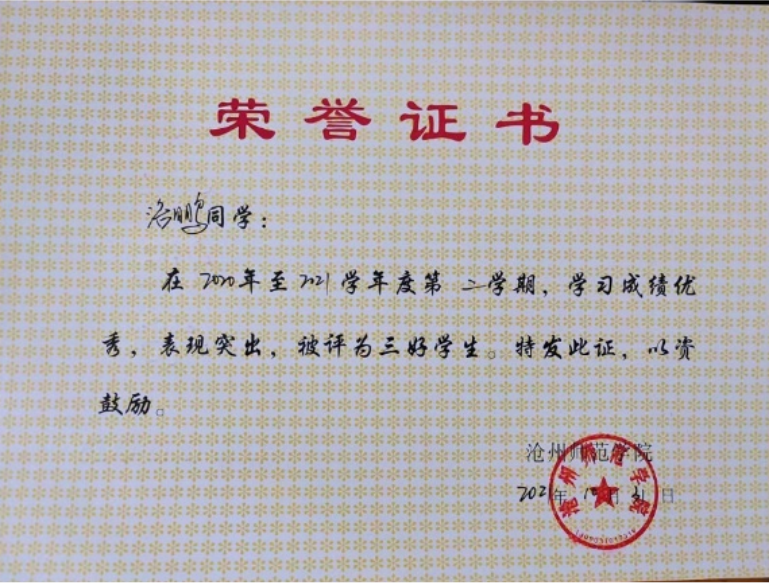 荣誉证书
洛鹏同学：
在2020年至2021学年度第二学期，学习成绩优
秀，表现突出，被评为三好学生。特发此证，以资
鼓励。
沧州师范学院
2021年 月 日
沧州师范学院